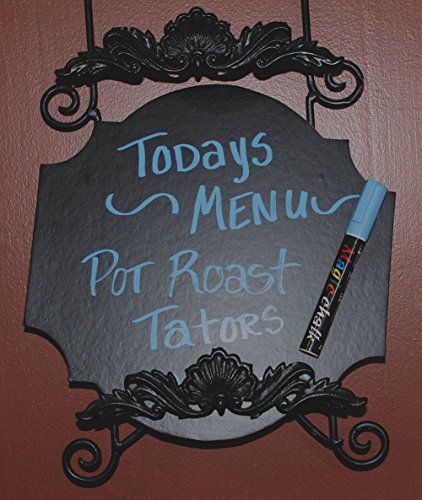 Todays
~ MENU ~
Pot Roast
Tators
Magic chalk